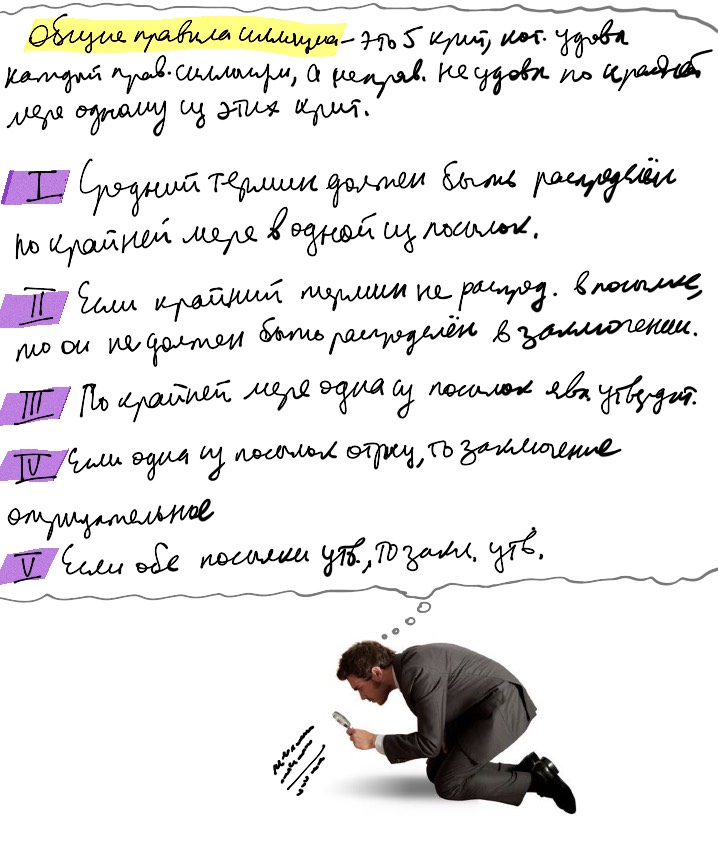 Общие правила силлогизма – это 5 крит, кот. удовл
каждый прав. силлогизм, а неправ. не удовл по крайней
мере одному из этих крит.
I Средний термин должен быть распределён
по крайней мере в одной из посылок.
II Если крайний термин не распред. в посылке,
то он не должен быть распределён в заключении.
III По крайней мере одна из посылок явл утвердит.
IV Если одна из посылок отриц, то заключение
отрицательное
V Если обе посылки утв., то закл. утв.